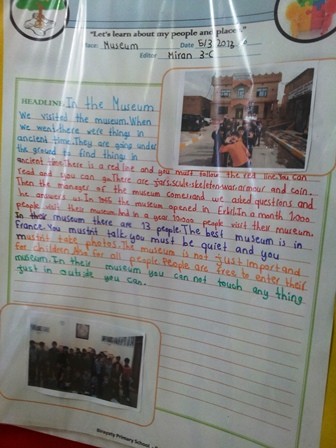 "Let's learn about my people and places."
Place: Museum Date 5/3/2013
Editor Miran 3-C
HEADLINE: In the Museum
We visited the museum. When
we went there were things in
ancient time. They are going under
the ground to find things in
ancient time. There is a red line and you must follow the red line. You can
read and you can There are skeleton. war. armour and coin.
Then the manager of the museum comer. and we asked questions and
he answers us. In the museum opened in Erbil. In a month 1000
people visit their museum. but in a year 10000 people visit their museum.
In their museum there are 13 people. The best museum is in
France. You mustnt talk you must be quiet and you
mustnt take photos. The museum is not just important
for children. Also for all people. People are free to enter their
museum. In their museum you can not touch any thing
just in outside you can.
Primary School